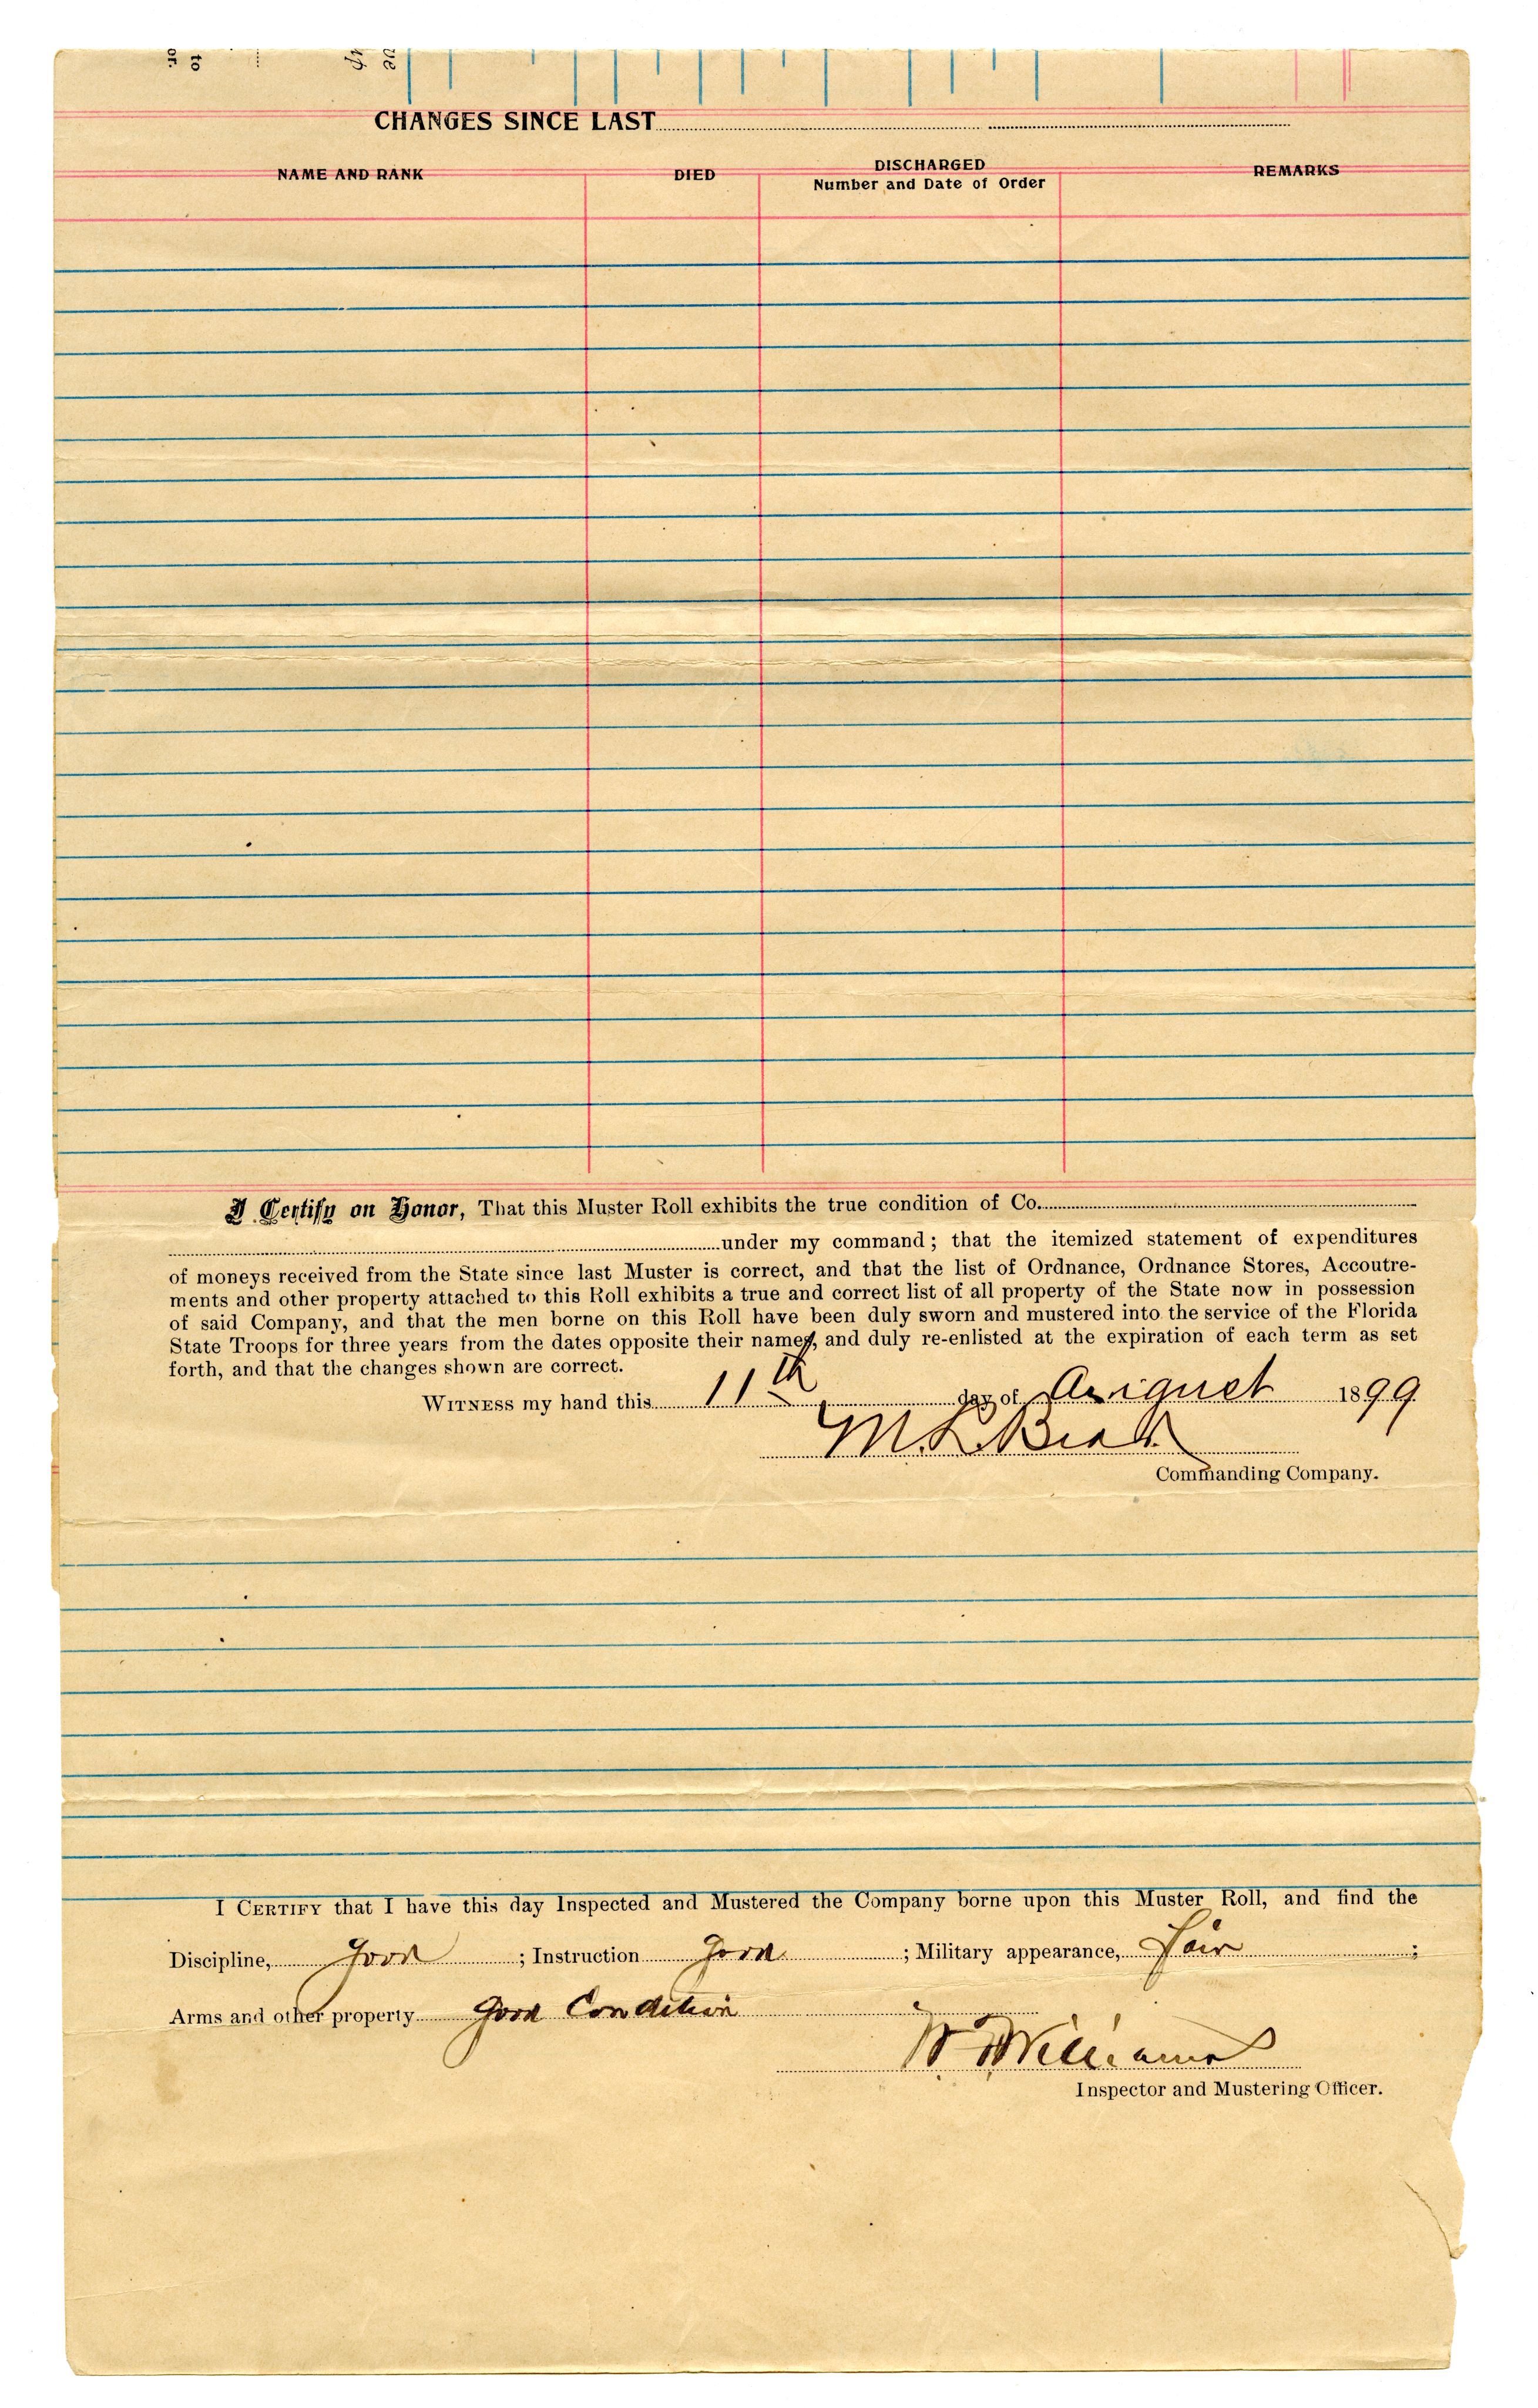 CHANGES SINCE LAST
NAME AND RANK DIED DISCHARGED Number and Date of Order REMARKS
I Certify on Honor, That this Muster Roll exhibits the true condition of Co.
under my command; that the itemized statement of expenditures
of moneys received from the State since last Muster is correct, and that the list of Ordnance, Ordnance Stores, Accoutre-
ments and other property attached to this Roll exhibits a true and correct list of all property of the State now in possession
of said Company, and that the men borne on this Roll have been duly sworn and mustered into the service of the Florida
State Troops for three years from the dates opposite their names, and duly re-enlisted at the expiration of each term as set
forth, and that the changes shown are correct.
WITNESS my hand this 11th day of August 1899.
M. L.
Commanding Company.
I CERTIFY that I have this day Inspected and Mustered the Company borne upon this Muster Roll, and find the
Discipline, Good ; Instruction Good ; Military appearance, Fair ;
Arms and other property Good Condition
Williams
Inspector and Mustering Officer.